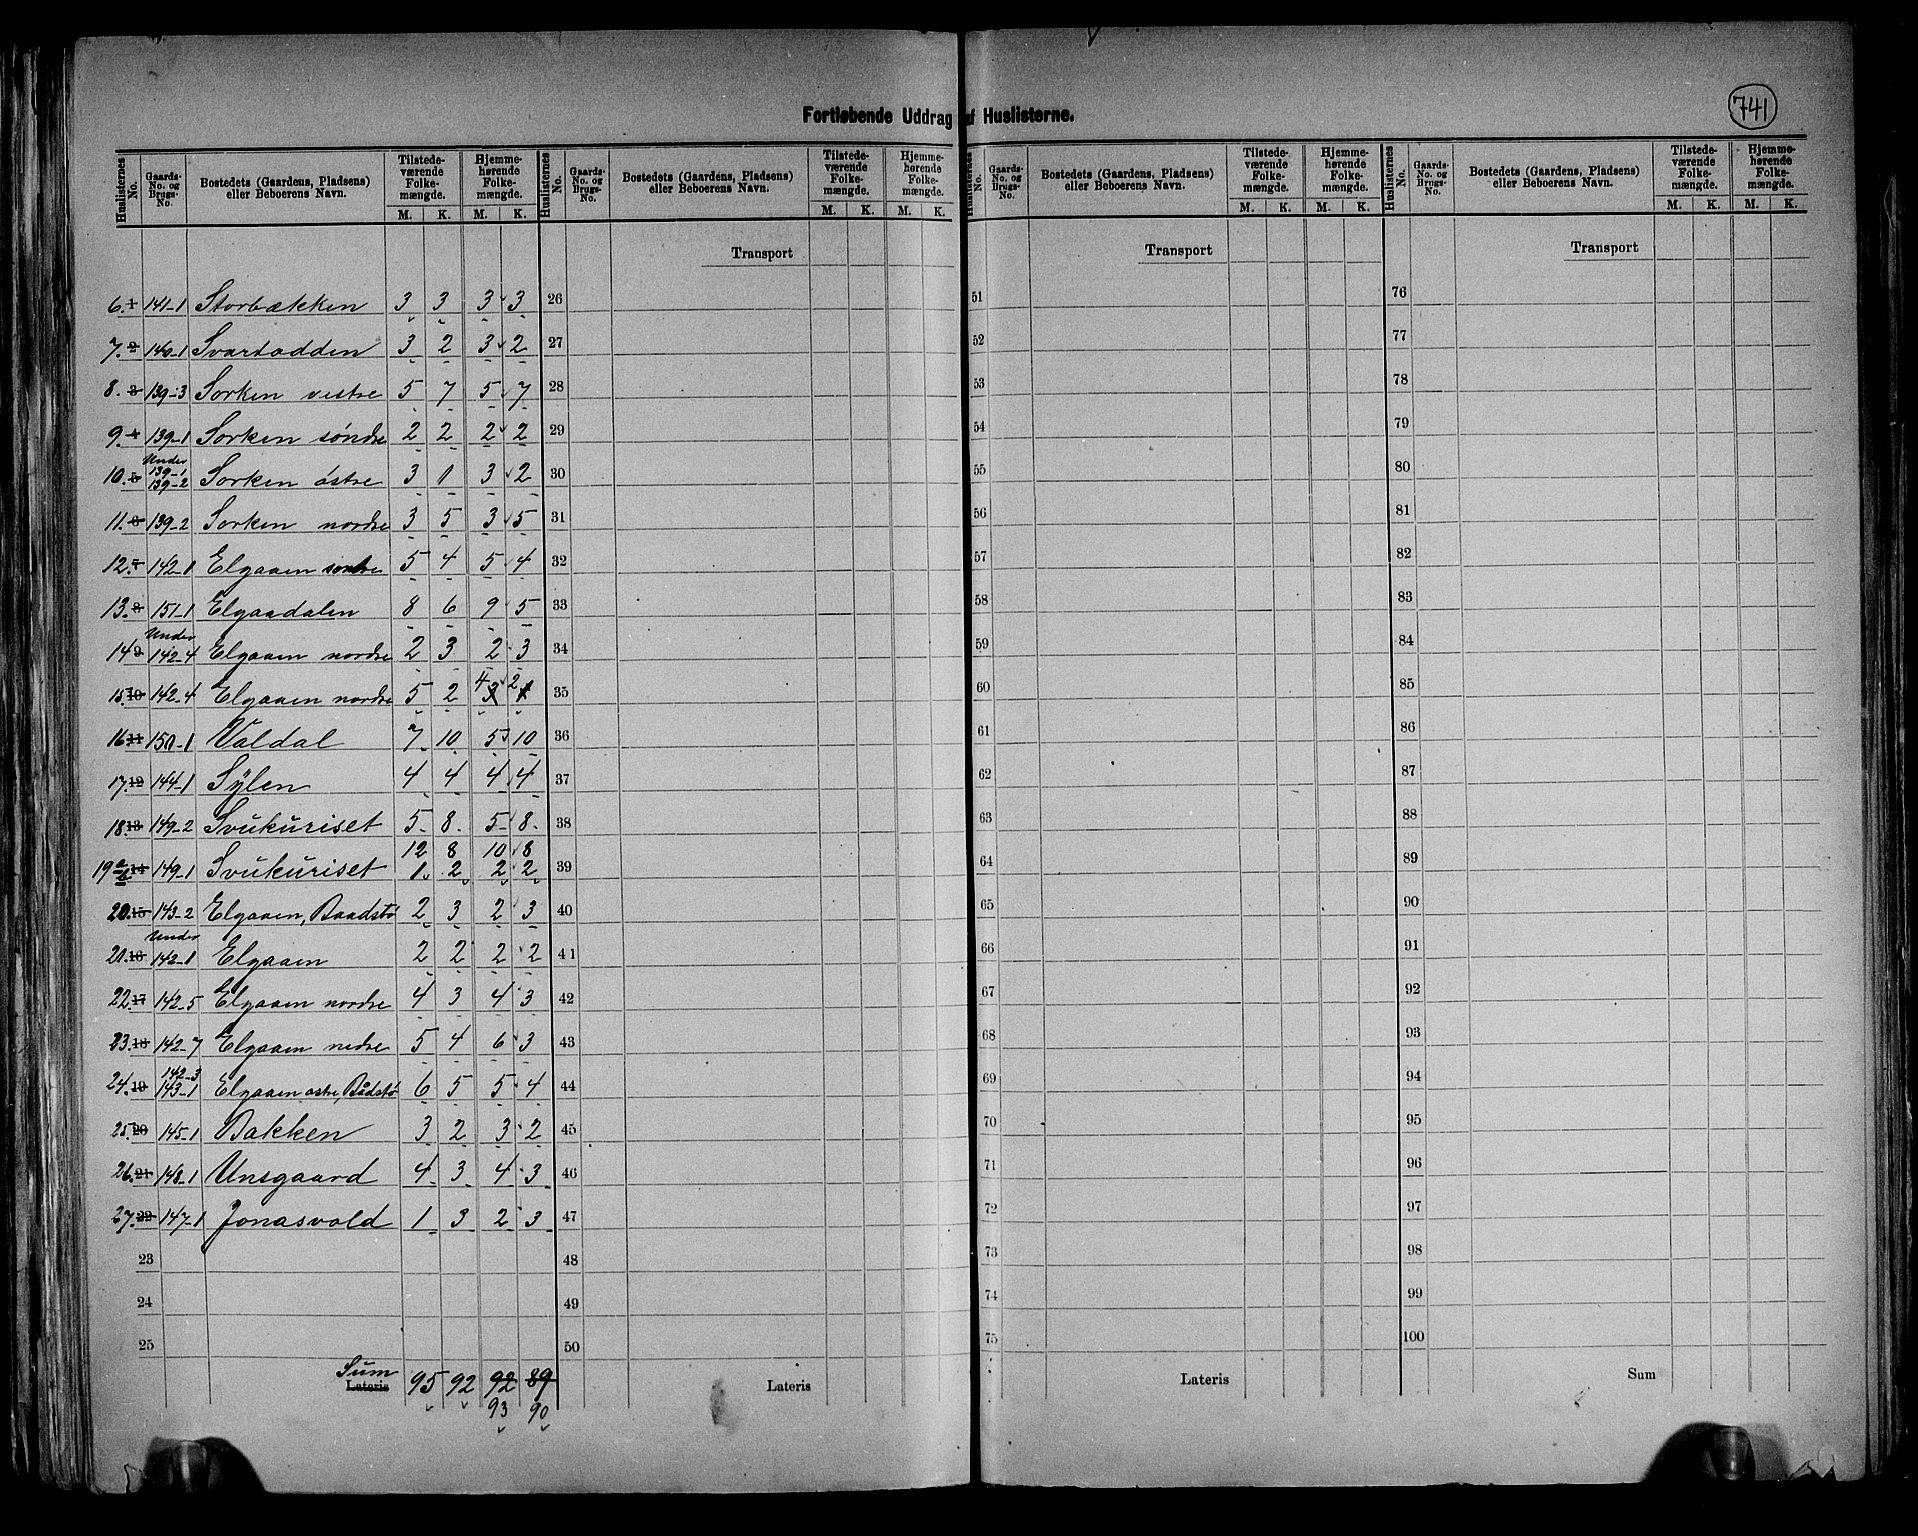 741
Fortløbende Uddrag af Huslisterne.
Huslisternes No. Gaards-No. og Brugs-No. Bostedets (Gaardens, Pladsens) eller Beboerens Navn. Tilstedeværende Folkemængde. Hjemmehørende Folkemængde.
M. K. M. K.
Transport
6. 1 141-1 Storbækken 3 3 3 3
7. 2 140-1 Svartodden 3 2 3 2
8. 3 139-3 Sorken vestre 5 7 5 7
9. 4 139-1 Sorken søndre 2 2 2 2
10. 5 Under 139-1 139-2 Sorken østre 3 1 3 2
11. 6 139-2 Sorken nordre 3 5 3 5
12. 7 142-1 Elgaaen søndre 5 4 5 4
13. 8 151-1 Elgaadalen 8 6 9 5
14. 9 Under 142-4 Elgaaen nordre 2 3 2 3
15. 10 142-4 Elgaaen nordre 5 2 4 3 2 1
16. 11 150-1 Valdal 7 10 5 10
17. 12 144-1 Sylen 4 4 4 4
18. 13 149-2 Svukuriset 5 8 5 8
12 8 10 8
19 a b 14 149-1 Svukuriset 1 2 2 2
20. 15 143-2 Elgaaen, Baadstø 2 3 2 3
21. 16 Under 142-1 Elgaaen 2 2 2 2
22. 17 142-5 Elgaaen nordre 4 3 4 3
23. 18 142-7 Elgaaen nedre 5 4 6 3
24. 19 142-3 143-1 Elgaaen østre, Bådstø 6 5 5 4
25. 20 145-1 Bakken 3 2 3 2
26. 21 148-1 Unsgaard 4 3 4 3
27. 22 147-1 Jonasvold 1 3 2 3
23
24
25
Sum
Lateris 95 92 92 89
93 90
Huslisternes No. Gaards-No. og Brugs-No. Bostedets (Gaardens, Pladsens) eller Beboerens Navn. Tilstedeværende Folkemængde. Hjemmehørende Folkemængde.
M. K. M. K.
Transport
26
27
28
29
30
31
32
33
34
35
36
37
38
39
40
41
42
43
44
45
46
47
48
49
50
Lateris
Huslisternes No. Gaards-No. og Brugs-No. Bostedets (Gaardens, Pladsens) eller Beboerens Navn. Tilstedeværende Folkemængde. Hjemmehørende Folkemængde.
M. K. M. K.
Transport
51
52
53
54
55
56
57
58
59
60
61
62
63
64
65
66
67
68
69
70
71
72
73
74
75
Lateris
Huslisternes No. Gaards-No. og Brugs-No. Bostedets (Gaardens, Pladsens) eller Beboerens Navn. Tilstedeværende Folkemængde. Hjemmehørende Folkemængde.
M. K. M. K.
Transport
76
77
78
79
80
81
82
83
84
85
86
87
88
89
90
91
92
93
94
95
96
97
98
99
100
Sum